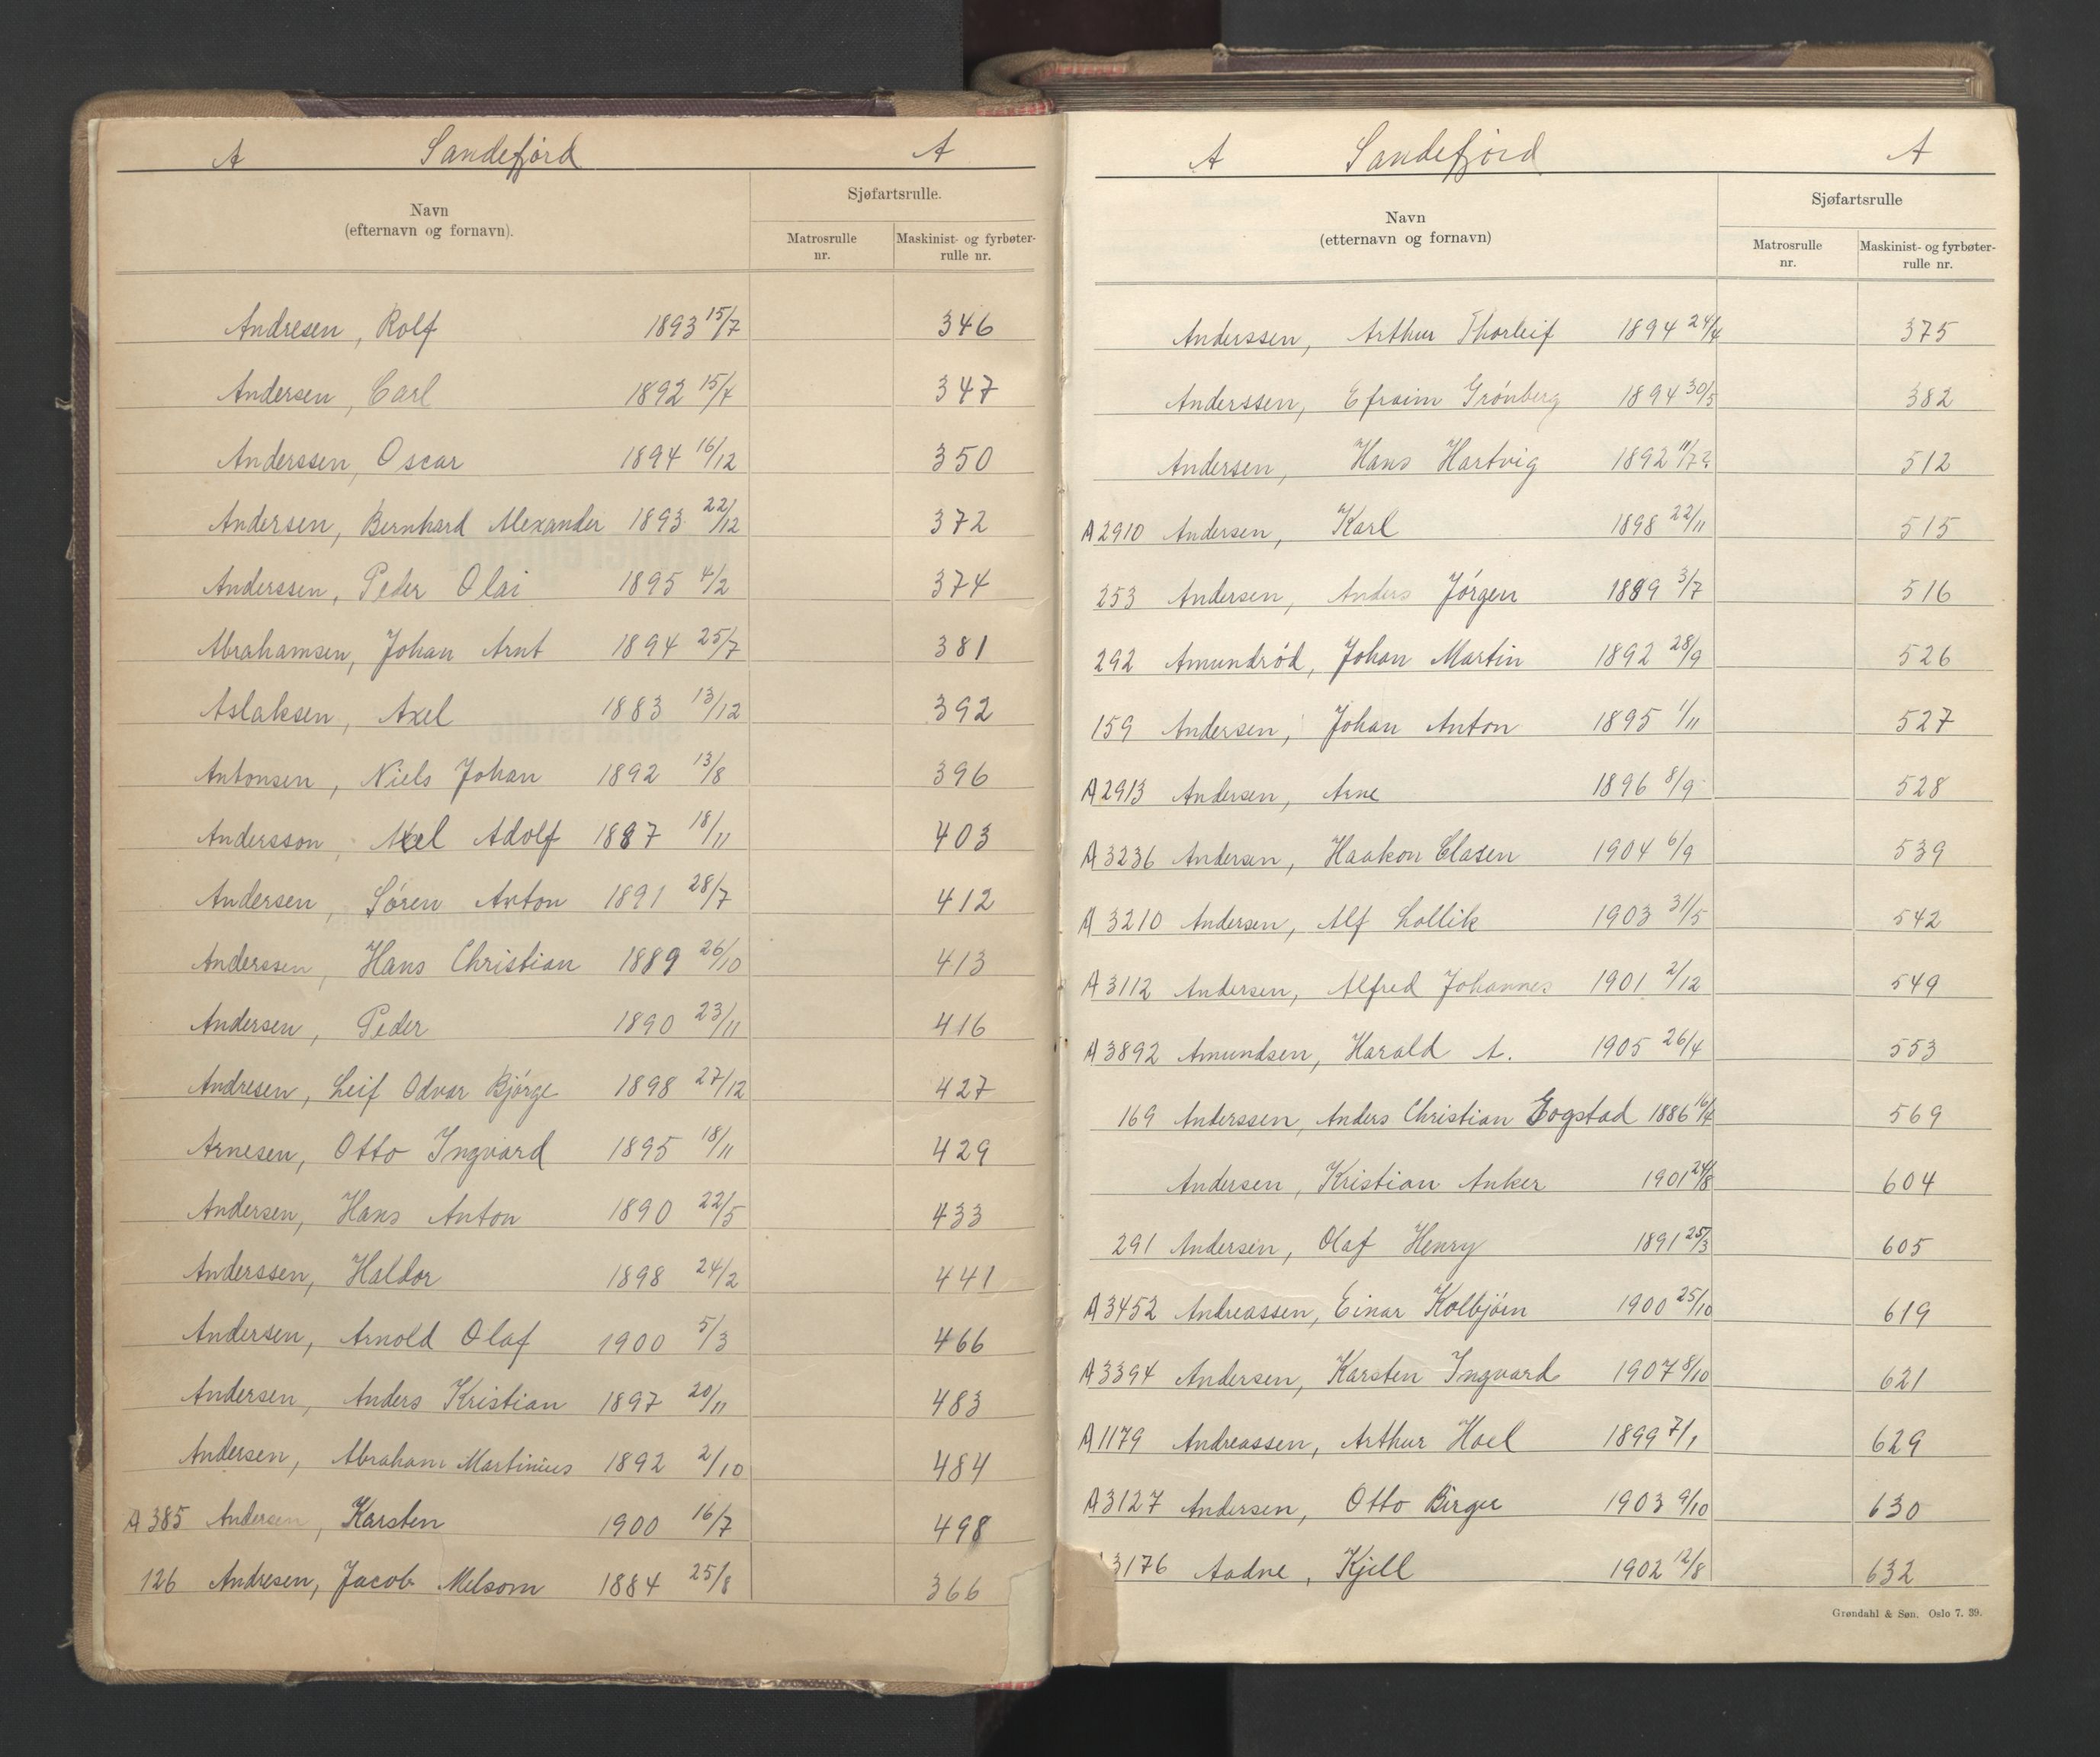 A Sandefjord A
Navn
(efternavn og fornavn).
Sjøfartsrulle.
Matrosrulle nr.
Maskinist- og fyrbøter-rulle nr.
Andresen, Rolf 1893 15/7 346
Andersen, Carl 1892 15/7 347
Anderssen, Oscar 1894 16/12 350
Andersen, Bernhard Alexander 1893 22/12 372
Anderssen, Peder Olai 1895 4/2 374
Abrahamsen, Johan Arnt 1894 25/7 381
Aslaksen, Axel 1883 13/12 392
Antonsen, Niels Johan 1892 13/8 396
Andersson, Axel Adolf 1887 18/11 403
Andersen, Søren Anton 1891 28/7 412
Anderssen, Hans Christian 1889 26/10 413
Andersen, Peder 1890 23/11 416
Andresen, Leif Odvar Bjørge 1898 27/12 427
Arnesen, Otto Ingvard 1895 18/11 429
Andersen, Hans Anton 1890 22/5 433
Anderssen, Haldor 1898 24/2 441
Andersen, Arnold Olaf 1900 5/3 466
Andersen, Anders Kristian 1897 20/11 483
Andersen, Abraham Martinius 1892 2/10 484
A 385 Andersen, Karsten 1900 16/7 498
126 Andresen, Jacob Melsom 1884 25/8 366
A Sandefjord A
Navn
(etternavn og fornavn)
Sjøfartsrulle
Matrosrulle nr.
Maskinist- og fyrbøter-rulle nr.
Anderssen, Arthur Thorleif 1894 24/4 375
Anderssen, Efraim Grønberg 1894 30/5 382
Andersen, Hans Hartvig 1892 11/7? 512
A 2910 Andersen, Karl 1898 22/11 515
253 Andersen, Anders Jørgen 1889 3/7 516
292 Amundrød, Johan Martin 1892 28/9 526
159 Andersen, Johan Anton 1895 1/11 527
A 2913 Andersen, Arne 1896 8/9 528
A 3236 Andersen, Haakon Clasen 1904 6/9 539
A 3210 Andersen, Alf Lollik 1903 31/5 542
A 3112 Andersen, Alfred Johannes 1901 2/12 549
A 3892 Amundsen, Harald A. 1905 26/4 553
169 Anderssen, Anders Christian Gogstad 1886 16/4 569
Andersen, Kristian Anker 1901 24/8 604
291 Andersen, Olaf Henry 1891 25/3 605
A 3452 Andreassen, Einar Kolbjørn 1900 25/10 619
A 3394 Andersen, Karsten Ingvard 1907 8/10 621
A 1179 Andreassen, Arthur Hoel 1899 7/1 629
A 3127 Andersen, Otto Birger 1903 9/10 630
3176 Aadne, Kjell 1902 12/8 632
Grøndahl & Søn, Oslo 7. 39.